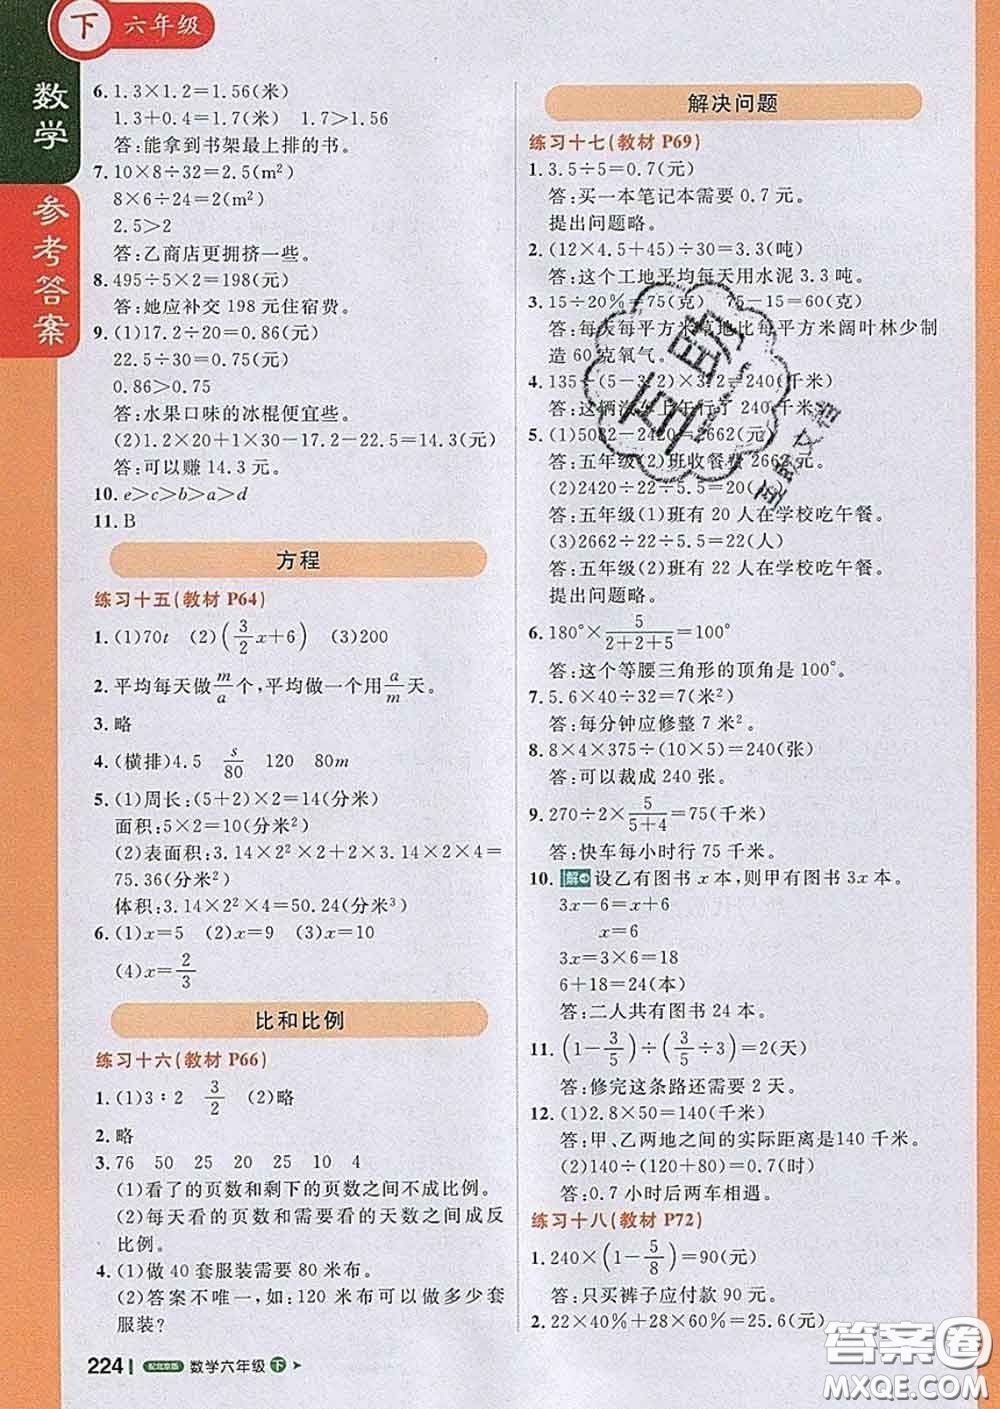 下 六年级
数学
参考答案
6. 1.3×1.2=1.56(米)
1.3+0.4=1.7(米) 1.7>1.56
答:能拿到书架最上排的书。
7. 10×8÷32=2.5(m²)
8×6÷24=2(m²)
2.5>2
答:乙商店更拥挤一些。
8. 495÷5×2=198(元)
答:她应补交 198 元住宿费。
9. (1)17.2÷20=0.86(元)
22.5÷30=0.75(元)
0.86>0.75
答:水果口味的冰棍便宜些。
(2)1.2×20+1×30-17.2-22.5=14.3(元)
答:可以赚 14.3 元。
10. e>c>b>a>d
11. B
方程
练习十五(教材 P64)
1. (1)70t (2)(3/2x+6) (3)200
2. 平均每天做m/a个,平均做一个用a/m天。
3. 略
4. (横排)4.5 s/80 120 80m
5. (1)周长:(5+2)×2=14(分米)
面积:5×2=10(分米²)
(2)表面积:3.14×2²×2+2×3.14×2×4=
75.36(分米²)
体积:3.14×2²×4=50.24(分米³)
6. (1)x=5 (2)x=9 (3)x=10
(4)x=2/3
比和比例
练习十六(教材 P66)
1. (1)3∶2 3/2 (2)略
2. 略
3. 76 50 25 20 25 10 4
(1)看了的页数和剩下的页数之间不成比例。
(2)每天看的页数和需要看的天数之间成反
比例。
4. (1)做 40 套服装需要 80 米布。
(2)答案不唯一,如:120 米布可以做多少套
服装?
224 配北京版 数学六年级 下
解决问题
练习十七(教材 P69)
1. 3.5÷5=0.7(元)
答:买一本笔记本需要 0.7 元。
提出问题略。
2. (12×4.5+45)÷30=3.3(吨)
答:这个工地平均每天用水泥 3.3 吨。
3. 15÷20%=75(克) 75-15=60(克)
答:每天每平方米草地比每平方米阔叶林少制
造 60 克氧气。
4. 135÷(5-3.2)×3.2=240(千米)
答:这辆汽车上午行了 240 千米。
5. (1)5082-2420=2662(元)
答:五年级(2)班收餐费 2662 元。
(2)2420÷22÷5.5=20(人)
答:五年级(1)班有 20 人在学校吃午餐。
(3)2662÷22÷5.5=22(人)
答:五年级(2)班有 22 人在学校吃午餐。
提出问题略。
6. 180°×5/(2+2+5)=100°
答:这个等腰三角形的顶角是 100°。
7. 5.6×40÷32=7(米²)
答:每分钟应修整 7 米²。
8. 8×4×375÷(10×5)=240(张)
答:可以裁成 240 张。
9. 270÷2×5/(5+4)=75(千米)
答:快车每小时行 75 千米。
10. 解 设乙有图书 x 本,则甲有图书 3x 本。
3x-6=x+6
x=6
3x=3×6=18
6+18=24(本)
答:二人共有图书 24 本。
11. (1-3/5)÷(3/5÷3)=2(天)
答:修完这条路还需要 2 天。
12. (1)2.8×50=140(千米)
答:甲、乙两地之间的实际距离是140 千米。
(2)140÷(120+80)=0.7(时)
答:0.7 小时后两车相遇。
练习十八(教材 P72)
1. 240×(1-5/8)=90(元)
答:只买裤子应付款 90 元。
2. 22×40%+28×60%=25.6(元)
答案圈
MXQE.COM